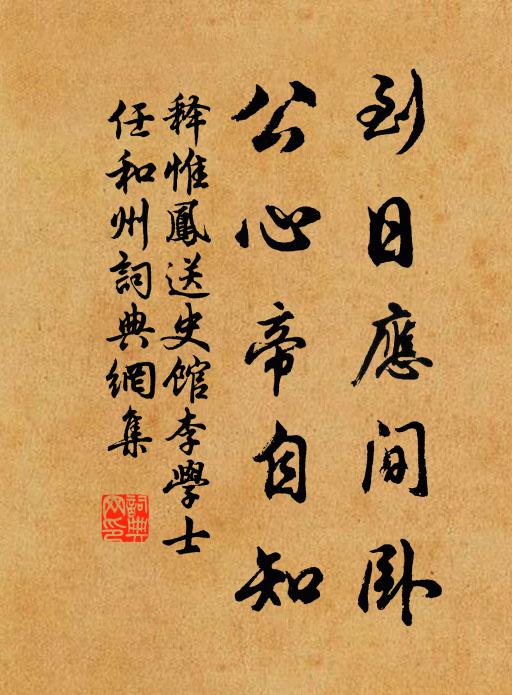 到日應間卧
公心帝自知
释惟鳳送史馆李學士
任和州詞典網集
詞典
网印